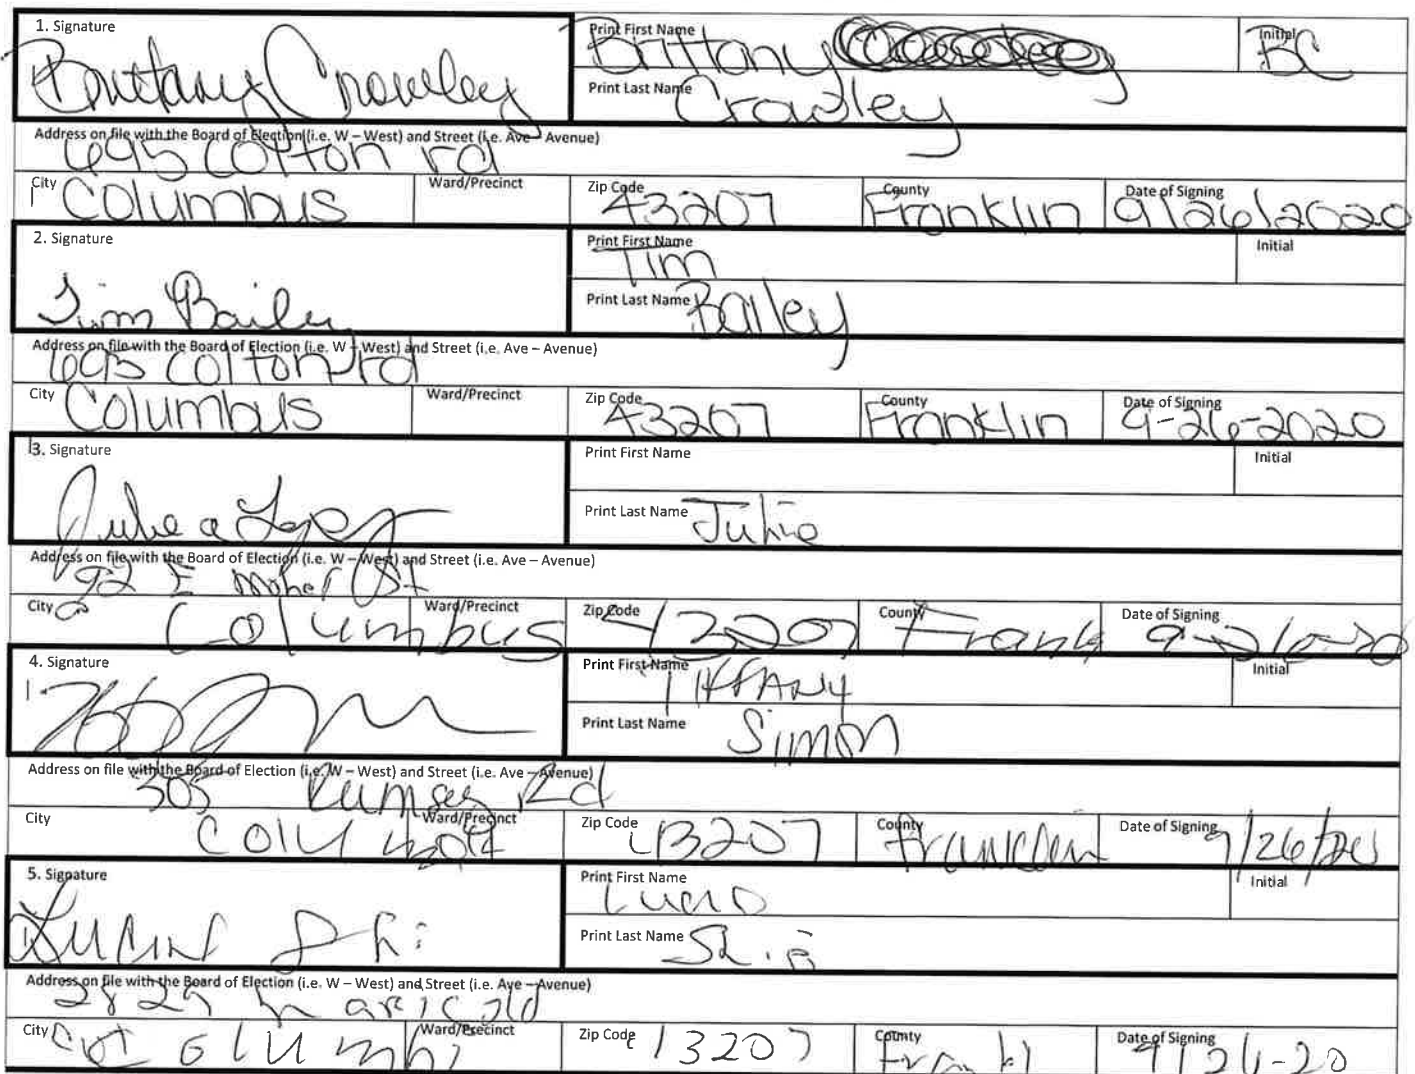 1. Signature Print First Name Brittany Initial BC
Brittany Crowley Print Last Name Crowley
Address on file with the Board of Election (i.e. W – West) and Street (i.e. Ave – Avenue)
695 Colton rd
City Columbus Ward/Precinct Zip Code 43207 County Franklin Date of Signing 9/26/2020
2. Signature Print First Name Tim Initial
Tim Bailey Print Last Name Bailey
Address on file with the Board of Election (i.e. W – West) and Street (i.e. Ave – Avenue)
695 Colton rd
City Columbus Ward/Precinct Zip Code 43207 County Franklin Date of Signing 9-26-2020
3. Signature Print First Name Initial
Print Last Name Julia
Address on file with the Board of Election (i.e. W – West) and Street (i.e. Ave – Avenue)
92 E St
City Columbus Ward/Precinct Zip Code 43207 County Date of Signing 9-26-20
4. Signature Print First Name Tiffany Initial
Print Last Name Simon
Address on file with the Board of Election (i.e. W – West) and Street (i.e. Ave – Avenue)
305 Rumsey Rd
City Ward/Precinct Zip Code 43207 County Date of Signing 9/26/20
5. Signature Print First Name Initial
Print Last Name
Address on file with the Board of Election (i.e. W – West) and Street (i.e. Ave – Avenue)
2829
City Ward/Precinct Zip Code 13207 County Date of Signing